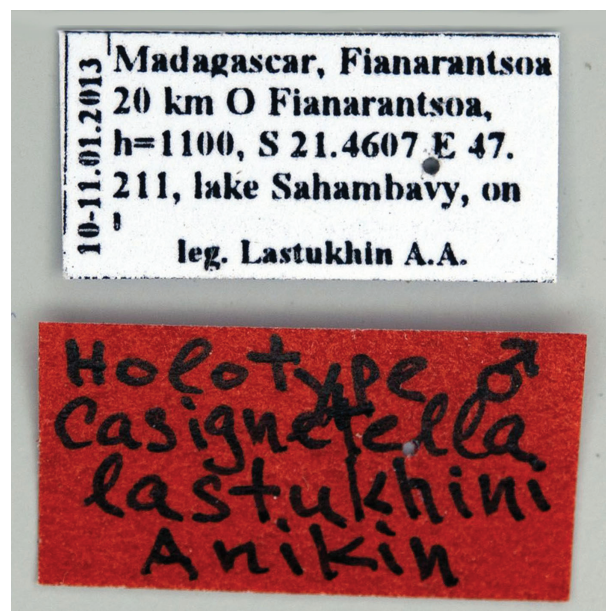 10-11.01.2013
Madagascar, Fianarantsoa
20 km O Fianarantsoa,
h=1100, S 21.4607 E 47.
211, lake Sahambavy, on
leg. Lastukhin A.A.
Holotype ♂
Casignetella
lastukhini
Anikin